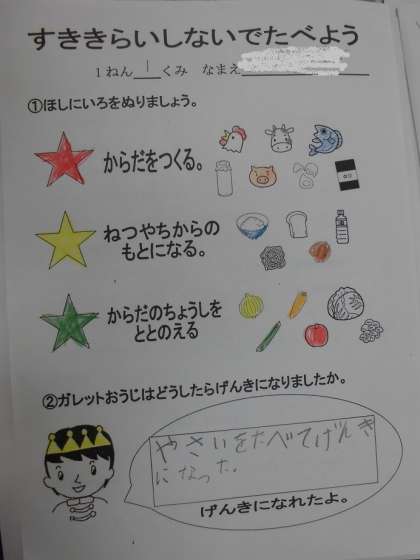 すききらいしないでたべよう
1ねん 1 くみ なまえ
①ほしにいろをぬりましょう。
からだをつくる。
ねつやちからの
もとになる。
からだのちょうしを
ととのえる
②ガレットおうじはどうしたらげんきになりましたか。
やさいをたべてげんき
になった。
げんきになれたよ。